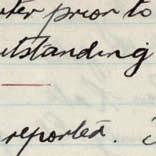 prior to
outstanding
reported.